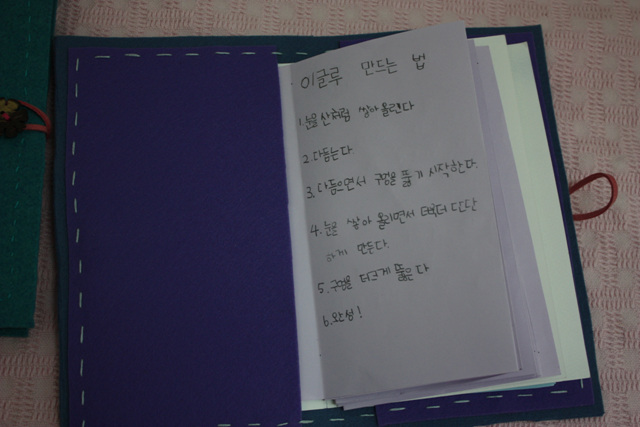 이글루 만드는 법
1. 눈을 산처럼 쌓아 올린다
2. 다듬는다
3. 다듬으면서 구멍을 뚫기 시작한다.
4. 눈을 쌓아 올리면서 더욱더 단단
하게 만든다.
5. 구멍을 더크게 뚫은다
6. 완성!